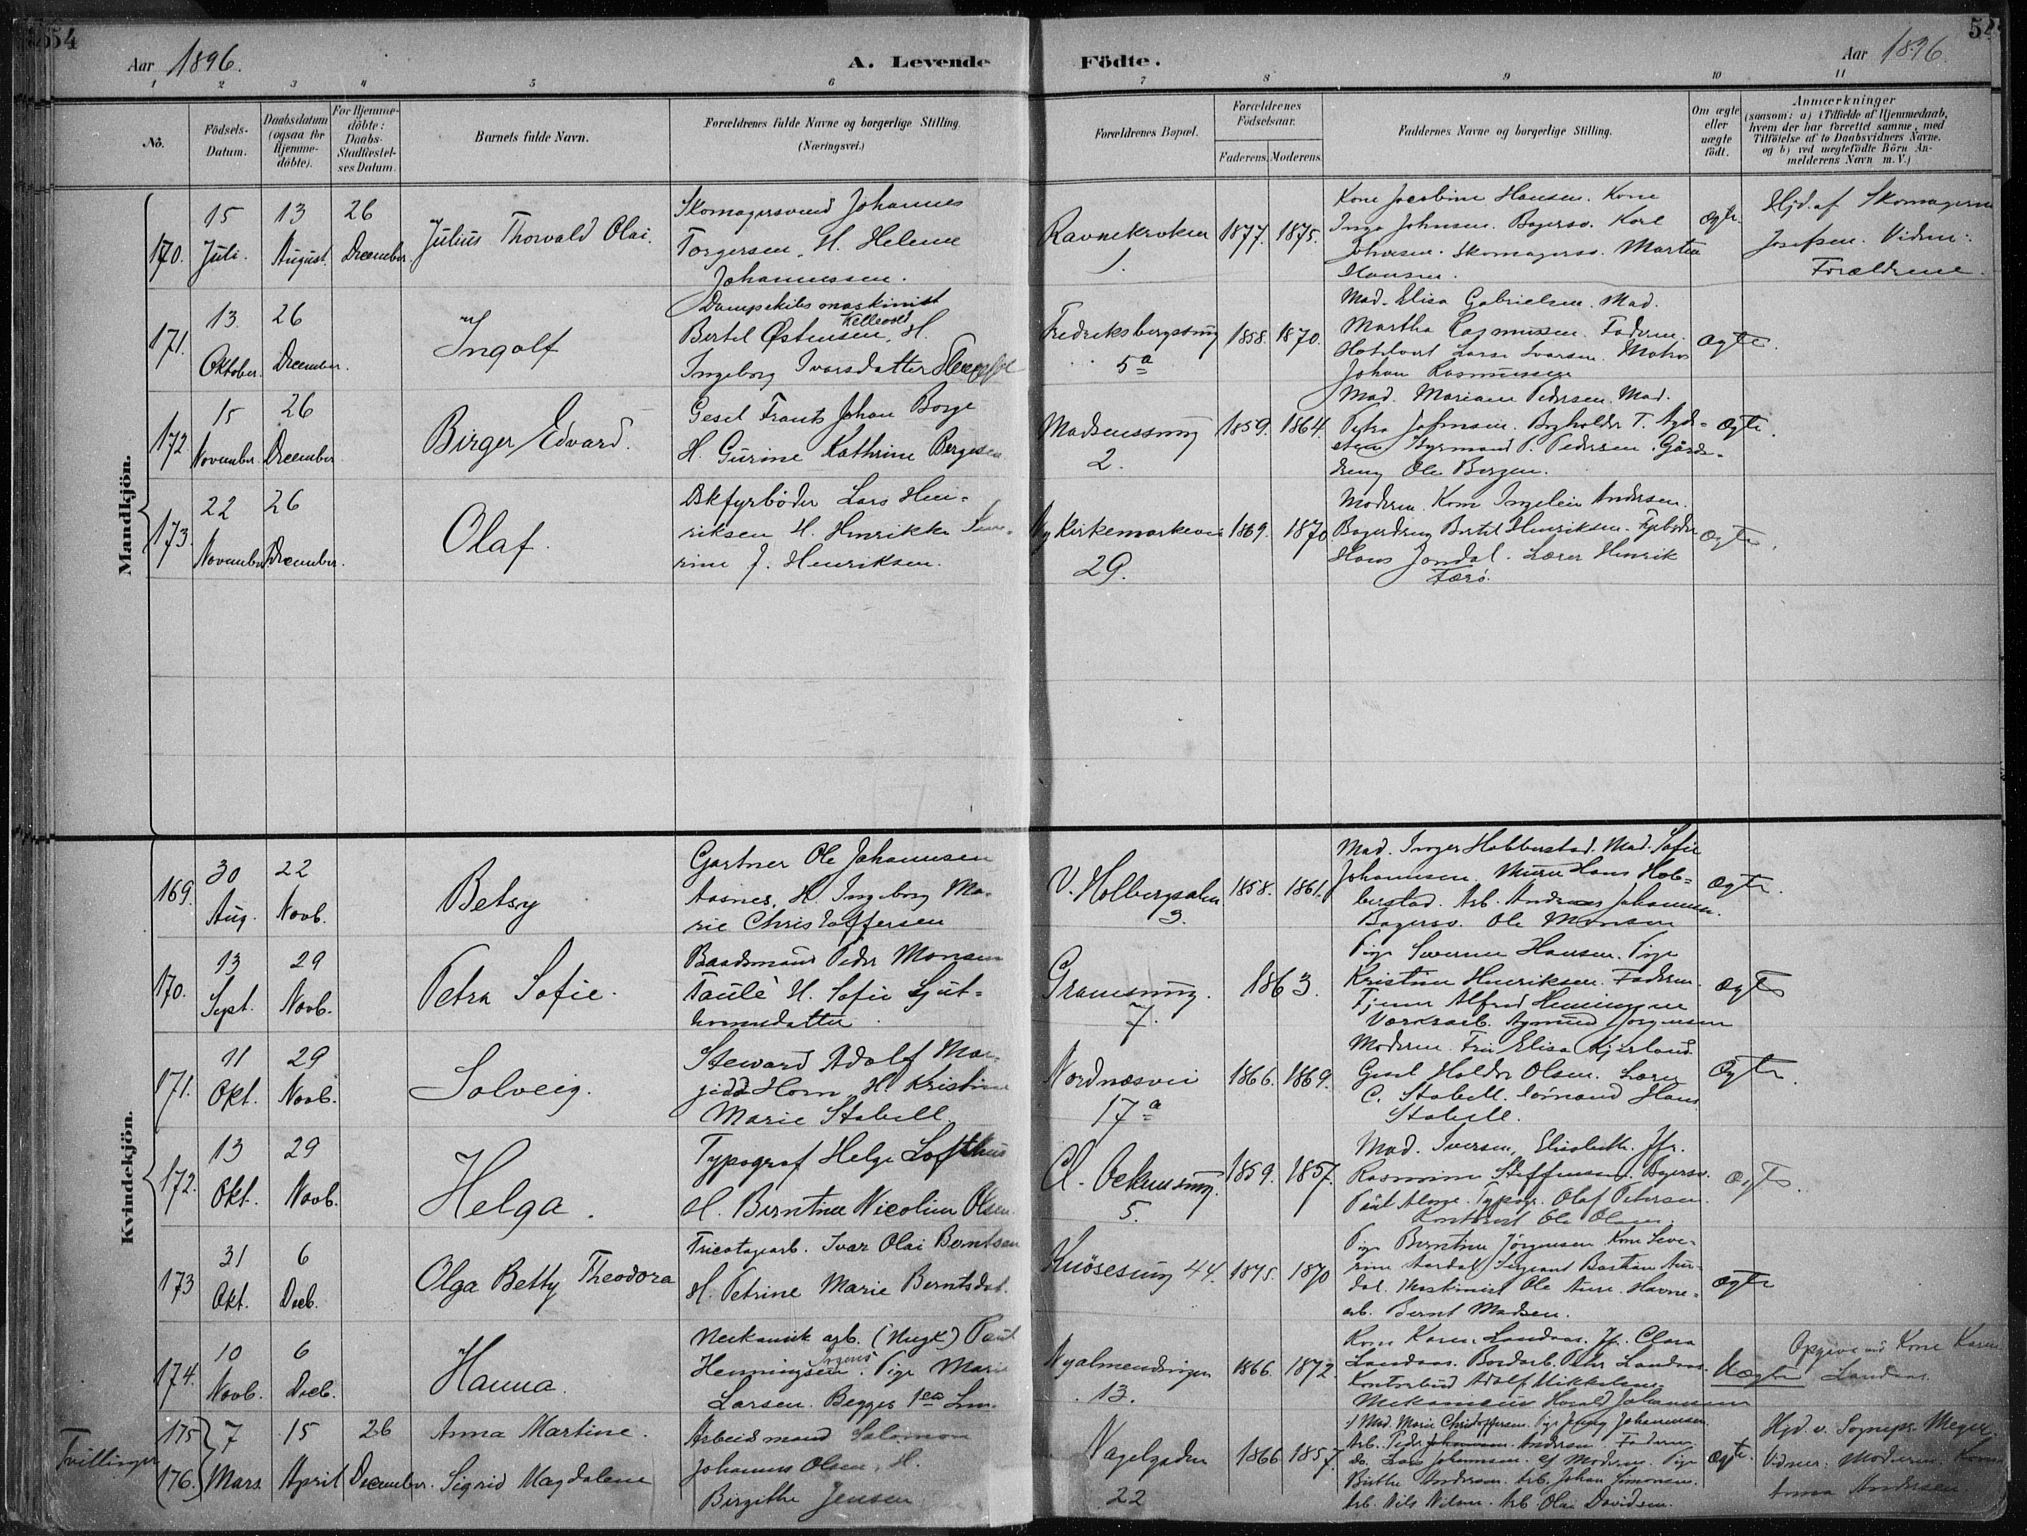 54
Aar 1896.
A. Levende Födte.
Aar 1896.
54
1 2 3 4 5 6 7 8 9 10 11
Nô.
Födsels-Datum.
Daabsdatum (ogsaa for Hjemme-döbte).
For Hjemme-döbte: Daabs-Stadfæstel-ses Datum.
Barnets fulde Navn.
Forældrenes fulde Navne og borgerlige Stilling. (Næringsvei.)
Forældrenes Bopæl.
Forældrenes Födselsaar.
Faderens. Moderens.
Faddernes Navne og borgerlige Stilling.
Om ægte eller uægte födt.
Anmærkninger
(saasom: a) i Tilfælde af Hjemmedaab,
hvem der har forrettet samme, med
Tilföielse af to Daabsvidners Navne.
og b) ved uægtefödte Börn An-
melderens Navn m. V.)
Mandkjön.
170.
15 Juli.
13 August.
26 December.
Julius Thorvald Olai.
Skomagersvend Johannes
Torgersen. H. Helene
Johannessen.
Ravnekroken
1.
1877. 1875.
Kone Jacobine Hansen. Kone
Inga Johnsen. Bagersv. Karl
Johnsen. Skomagersv. Martin
Hansen.
Ægte.
Hjd. af Skomagerm
Josefsen. Vidne:
Forældrene.
171.
13 Oktober.
26 December.
Ingolf
Dampskibsmaskinist
Bertel Østensen, H.
Ingeborg Ivarsdatter
Fredriksbergssmug
5a
1858. 1870.
Mad. Elisa Gabrielsen. Mad.
Martha Rasmussen. Faderen.
Lars Ivarsen. Matros
Johan Rasmussen
Ægte.
172
15 November.
26 December
Birger Edvard.
Gesel Frantz Johan Borge
H. Gurine Kathrine Bergesen
Madsenssmug
2.
1859. 1864.
Mad. Mariane Pedersen. Mad.
Petra Johnsen.
Styrmand P. Pedersen. Gårds-
dreng Ole Bergen.
Ægte.
173.
22 November
26 December.
Olaf.
Dskfyrbøder Lars Hen-
riksen H. Henrikke
rine J. Henriksen.
Ny Kirkemarkevei
29.
1869. 1870
Moderen. Kone Ingelein Andersen.
Bagerdreng Bertel Henriksen. Fyrbøder
Hans Jondal. Lærer Henrik
Færø.
Ægte.
Kvindekjön.
169.
30 Aug.
22 Novb.
Betsy
Gartner Ole Johannesen
Aasnes, H. Ingeborg Ma-
rie Christoffersen
V. Holbergsalm
3.
1858. 1861.
Mad. Inger Hobberstad. Mad. Sofie
Johannesen. Murer Hans Hob-
berstad. Arb. Andreas Johannesen.
Bagersv. Ole Monsen
Ægte.
170.
13 Sept.
29 Novb.
Petra Sofie.
Baadsmand Peder Monsen
H. Sofie
Gramsmug.
7.
1863.
Pige Severine Hansen. Pige
Kristine Henriksen. Faderen.
Tjener Alfred Henningsen
Værksarb. Jørgensen
Ægte
171.
11 Okt.
29 Novb.
Solveig.
Steward Adolf
Horn, H. Kristine
Marie Stabell
Nordnæsvei
17a
1866. 1869.
Moderen. Frü Elisa Kjerland.
Gesel Haldor Olsen. Lærer
C. Stabell. Sömand Hans
Stabell.
Ægte.
172.
13 Okt.
29 Novb.
Helga.
Typograf Helge Lofthus
H. Berntine Nicoline Olsen
Cl. Ockensmug.
5.
1859. 1857.
Mad. Iversen, Elisabeth. Jfr.
Rasmine Steffensen. Bagersv.
Typogr. Olaf Petersen.
Kontorist Ole Olsen.
Ægte.
173
31 Okt.
6 Decb.
Olga Betty Theodora
Tricotagearb. Ivar Olai Berntsen
H. Petrine Marie Berntsdat.
Knösesmug 44.
1875. 1870
Pige Berntine Jörgensen Kone Seve-
rine Aardal. Sergeant Bastian Aar-
dal. Maskinist Ole Aure. Havne-
arb. Bernt Madsen.
Ægte
174.
10 Novb.
6 Decb.
Hanna.
Mekanisk arb. (Ungk.) Paul
Henningsen. Pige Marie
Larsen. Begges 1ste Lm.
Nyalmendingen
13.
1866. 1872.
Kone Karen Landaas. Jf. Clara
Landaas. Bordarb. Peter Landaas.
Kontorbud Adolf Mikkelsen.
Harald Johannesen
Uægte
Opgivet v. Kone Karen
Landaas.
Tvillinger
175
176.
7 Mars
15 April
26 December.
Anna Martine.
Sigrid Magdalene
Arbeidsmand Salomon
Johannes Olsen, H.
Birgithe Jensen
Nagelgaden
22
1866 1857.
Mad. Marie Christoffersen. Pige Jenny Johannesen
Arb. Peder Andersen. Faderen.
Lars Johannesen. Moderen. Pige
Birthe Andersen. Arb. Johan Simonsen.
Arb. Nils Nilsen. Arb. Olai Davidsen.
Ægte.
Hjd. v. Sognepr. Meyer.
Vidner: Moderen. Kone
Anna Andersen